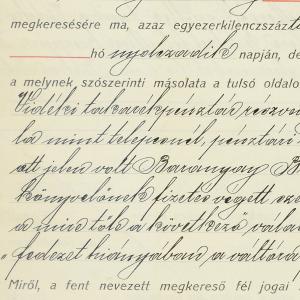 megkeresésére ma, azaz egyezerkilenczszázt
hó nyolczadik napján, de
a melynek szószerinti másolata a tulsó oldalo
Vidéki takarékpénztár részvén
la mint telepesnél, pénztári
ott jelen volt Baranyay B
könyvelőnek fizetés végett
a mire tőle a következő vála
"fedezet hiányában a váltóra
Miről, a fent nevezett megkereső fél jogai